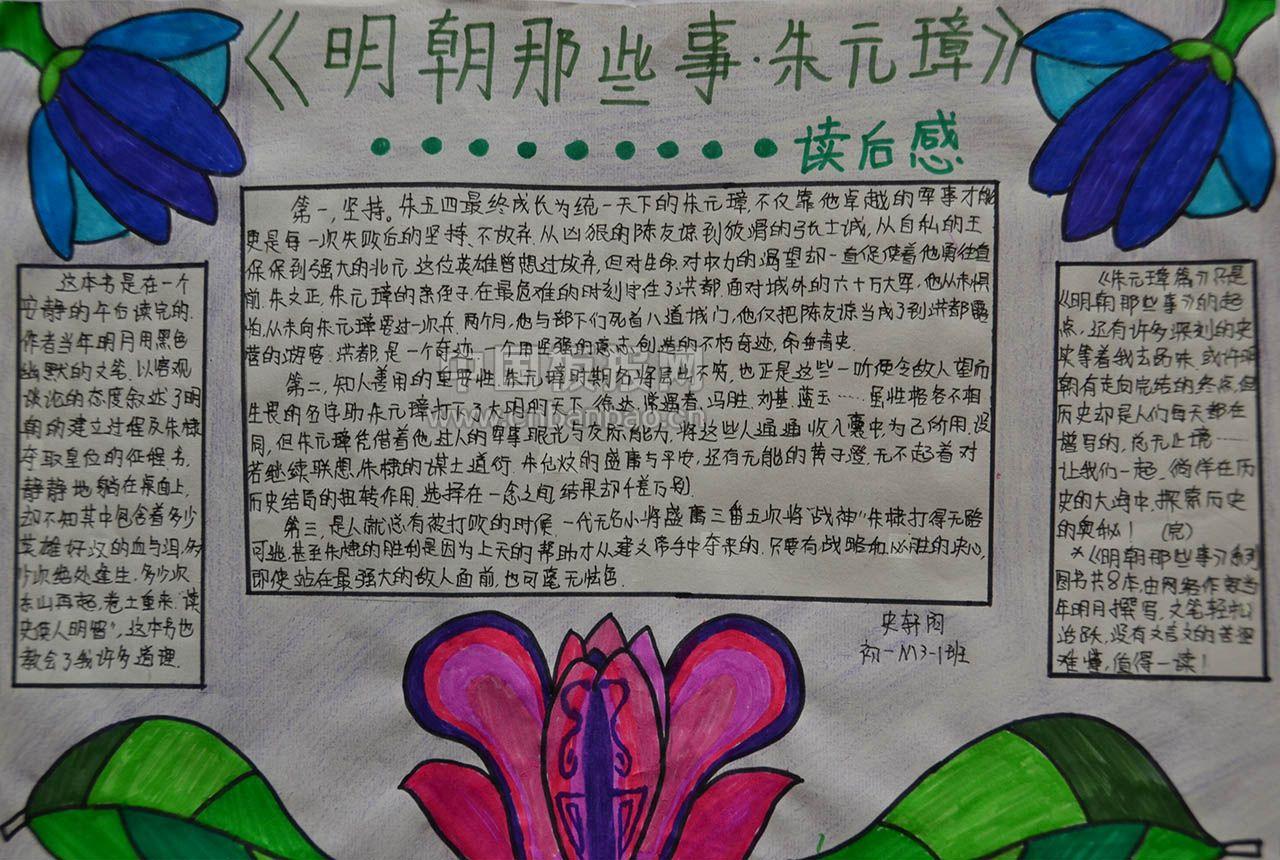 《明朝那些事·朱元璋》
读后感
这本书是在一个
安静的午后读完的.
作者当年明月用黑色
幽默的文笔,以客观
谈论的态度叙述了明
朝的建立过程及朱棣
夺取皇位的征程.书,
静静地躺在桌面上,
却不知其中包含着多少
英雄好汉的血与泪,多
少次绝处逢生,多少次
东山再起,卷土重来.“读
史使人明智”,这本书也
教会了我许多道理.
第一,坚持。朱五四最终成长为统一天下的朱元璋,不仅靠他卓越的军事才能
更是每一次失败后的坚持、不放弃.从凶狠的陈友谅到狡滑的张士诚,从自私的王
保保到强大的北元,这位英雄曾想过放弃,但对生命,对权力的渴望却一直促使着他勇往直
前.朱文正,朱元璋的亲侄子.在最危难的时刻守住了洪都.面对城外的六十万大军,他从未惧
怕,从未向朱元璋要过一次兵.两个月,他与部下们死首八道城门,他仅把陈友谅当成了到洪都露
营的游客.洪都,是一个奇迹,一个用坚强的意志创造的不朽奇迹,命垂青史.
第二,知人善用的重要性.朱元璋时期名将层出不穷,也正是这些一听便令敌人望而
生畏的名字助朱元璋打下了大明的天下.徐达,常遇春,冯胜,刘基,蓝玉……虽性格各不相
同,但朱元璋凭借着他过人的军事眼光与交际能力,将这些人通通收入囊中为己所用.设
若继续联想,朱棣的谋士道衍,朱允炆的盛庸与平安,还有无能的黄子澄,无不起着对
历史结局的扭转作用.选择在一念之间,结果却千差万别.
第三,是人就总有被打败的时候.一代无名小将盛庸三番五次将“战神”朱棣打得无路
可逃.甚至朱棣的胜利是因为上天的帮助才从建文帝手中夺来的.只要有战略和必胜的决心,
即使站在最强大的敌人面前,也可毫无怯色.
《朱元璋篇》只是
《明朝那些事》的起
点,还有许多深刻的史
实等着我去品味.或许明
朝有走向完结的终点,但
历史却是人们每天都在
谱写的,总无止境……
让我们一起,徜徉在历
史的大海中,探索历史
的奥秘! (完)
*《明朝那些事》系列
图书共8本,由网络作家当
年明月撰写,文笔轻松
活跃,没有文言文的苦涩
难懂,值得一读!
史轩
初一M3-1班
中国板报网
www.chibanbao.cn